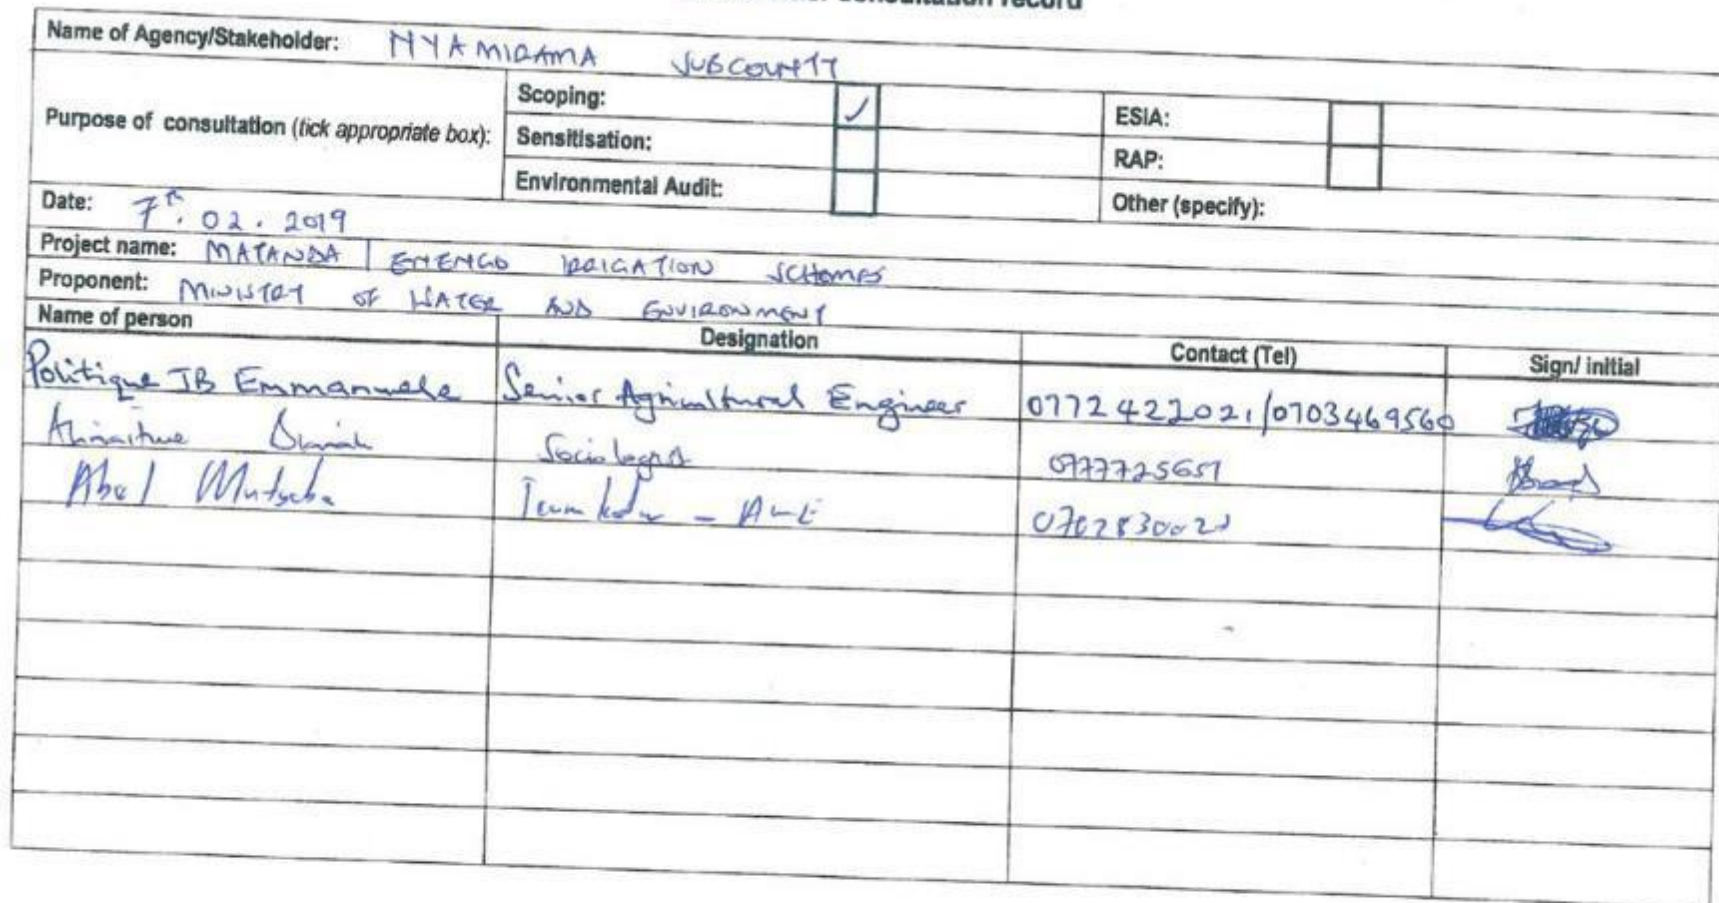 consultation record
Name of Agency/Stakeholder: NYAMIRAMA SUBCOUNTY
Purpose of consultation (tick appropriate box):
Scoping: ✓
ESIA:
Sensitisation:
RAP:
Environmental Audit:
Other (specify):
Date: 7th. 02. 2019
Project name: MATANDA / ENENGO IRRIGATION SCHEMES
Proponent: MINISTRY OF WATER AND ENVIRONMENT
Name of person Designation Contact (Tel) Sign/ initial
Politique JB Emmanuele Senior Agricultural Engineer 0772422021/0703469560
Sociologist 0777725651
Abel